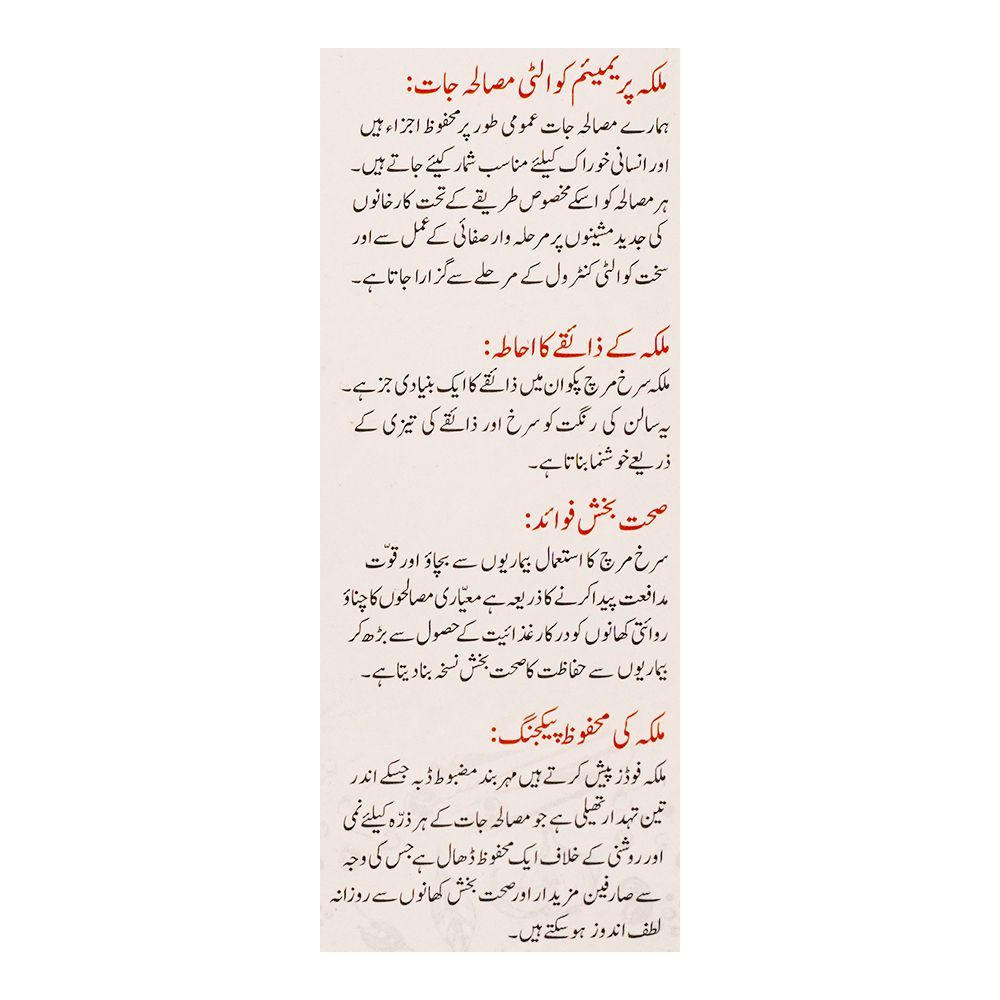 ملکہ پریمیئم کوالٹی مصالحہ جات:
ہمارے مصالحہ جات عمومی طور پر محفوظ اجزاء ہیں
اور انسانی خوراک کیلئے مناسب شمار کیئے جاتے ہیں۔
ہر مصالحہ کو اسکے مخصوص طریقے کے تحت کارخانوں
کی جدید مشینوں پر مرحلہ وار صفائی کے عمل سے اور
سخت کوالٹی کنٹرول کے مرحلے سے گزارا جاتا ہے۔
ملکہ کے ذائقے کا احاطہ:
ملکہ سرخ مرچ پکوان میں ذائقے کا ایک بنیادی جز ہے۔
یہ سالن کی رنگت کو سرخ اور ذائقے کی تیزی کے
ذریعے خوشنما بناتا ہے۔
صحت بخش فوائد:
سرخ مرچ کا استعمال بیماریوں سے بچاؤ اور قوّت
مدافعت پیدا کرنے کا ذریعہ ہے معیّاری مصالحوں کا چناؤ
روائتی کھانوں کو درکار غذائیت کے حصول سے بڑھ کر
بیماریوں سے حفاظت کا صحت بخش نسخہ بنا دیتا ہے۔
ملکہ کی محفوظ پیکجنگ:
ملکہ فوڈز پیش کرتے ہیں مہر بند مضبوط ڈبہ جسکے اندر
تین تہدار تھیلی ہے جو مصالحہ جات کے ہر ذرّہ کیلئے نمی
اور روشنی کے خلاف ایک محفوظ ڈھال ہے جس کی وجہ
سے صارفین مزیدار اور صحت بخش کھانوں سے روزانہ
لطف اندوز ہو سکتے ہیں۔